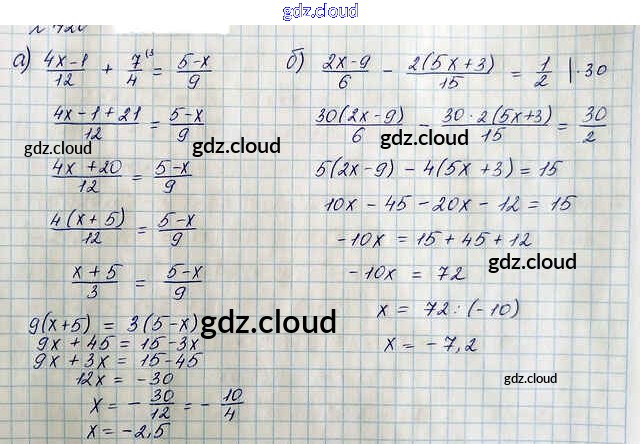 gdz.cloud
а) (4x-1)/12 + 7/4 ⁽³ = (5-x)/9
(4x-1+21)/12 = (5-x)/9
gdz.cloud gdz.cloud
(4x+20)/12 = (5-x)/9
4(x+5)/12 = (5-x)/9
(x+5)/3 = (5-x)/9
9(x+5) = 3(5-x)
gdz.cloud
9x + 45 = 15-3x
9x + 3x = 15-45
12x = -30
x = - 30/12 = - 10/4
x = -2,5
б) (2x-9)/6 - 2(5x+3)/15 = 1/2 |·30
30(2x-9)/6 - 30·2(5x+3)/15 = 30/2
gdz.cloud
5(2x-9) - 4(5x+3) = 15
10x - 45 - 20x - 12 = 15
-10x = 15 + 45 + 12
gdz.cloud
-10x = 72
x = 72:(-10)
x = -7,2
gdz.cloud